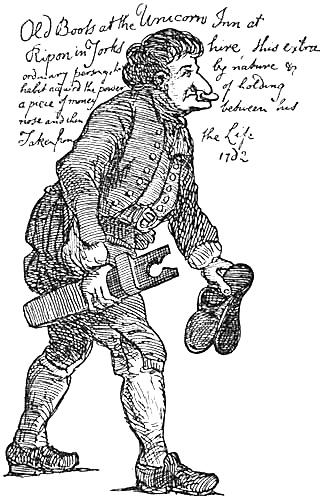 Old Boots at the Unicorn Inn at
Ripon in Yorks hire this extra
ordinary person by nature &
habit acquired the power of holding
a piece of money between his
nose and chin
Taken from the Life
1762